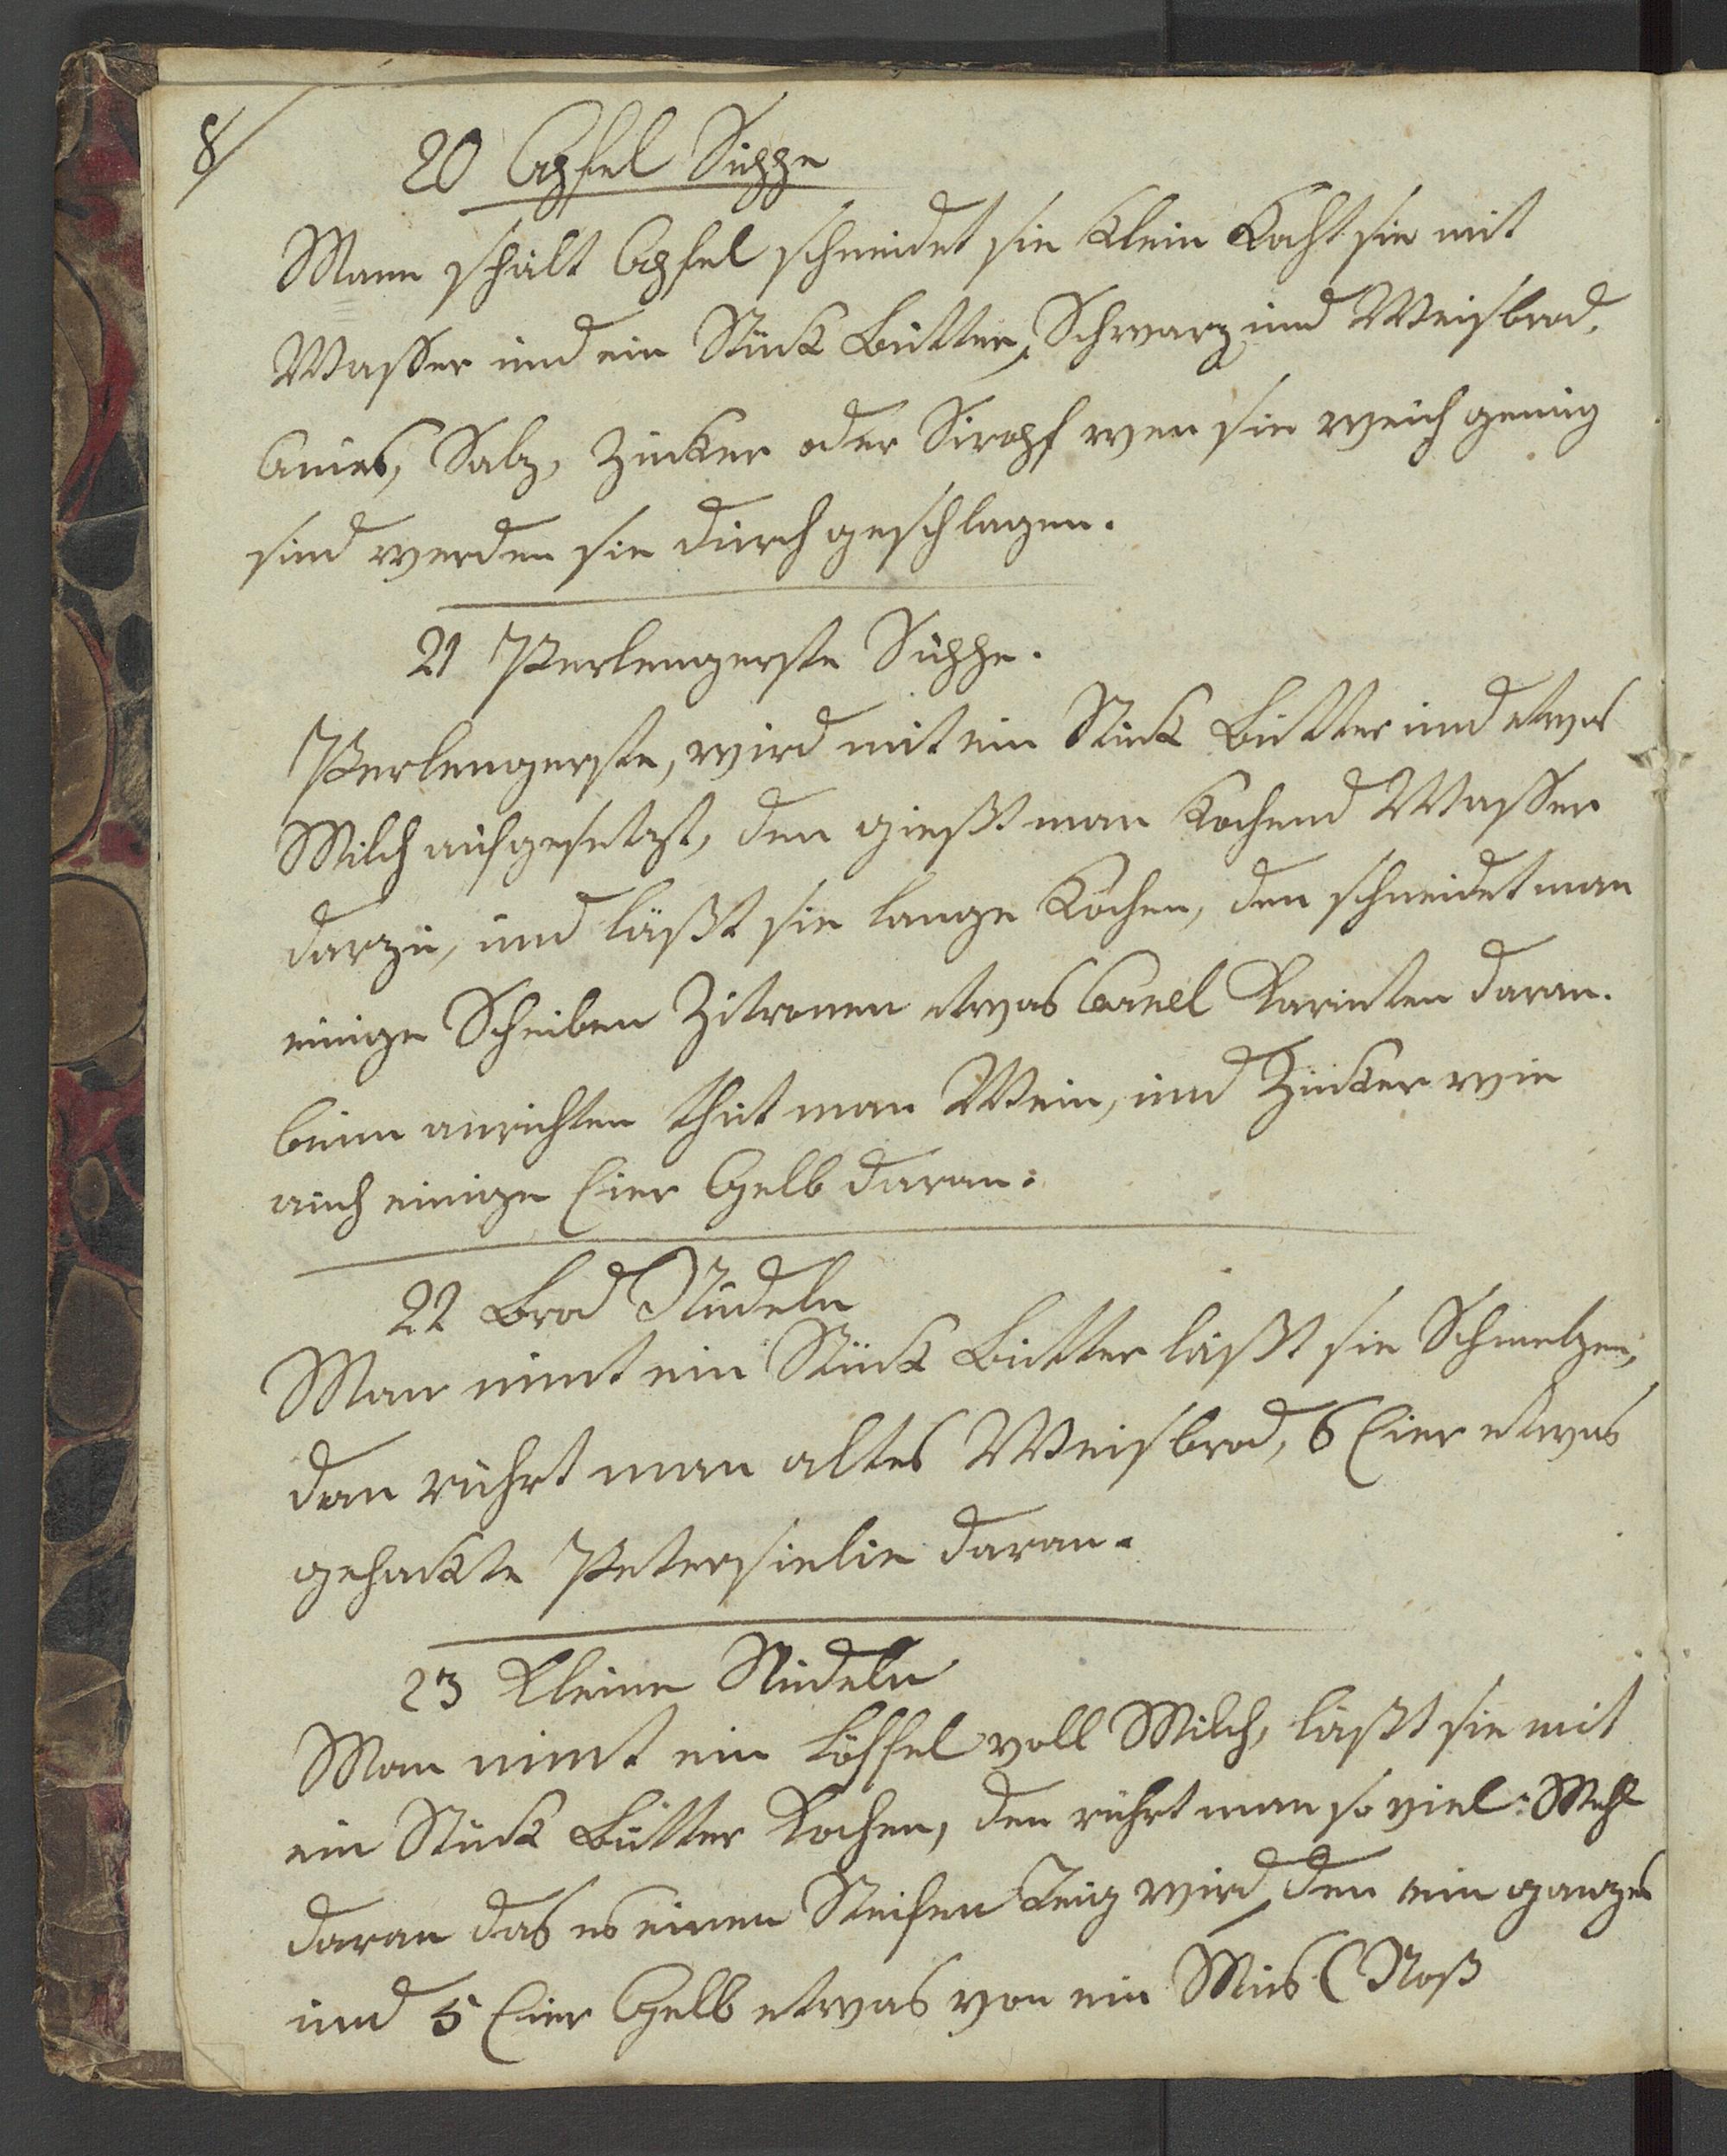 8/
20 Apfel Suppe
Mann schält Apfel schneidet sie klein kocht sie mit
Wasser und ein Stück Butter, Schwarz und Weisbrod,
Anies, Salz, Zucker oder Siropf wen sie weich genug
sind werden sie durch geschlagen.
21 Perlengerste Suppe.
Perlengerste, wird mit ein Stück Butter und etwas
Milch aufgesetzt, den gießt man kochend Wasser
darzu, und läßt sie lange kochen, den schneidet man
einige Scheiben Zitronen etwas Canel Karinten daran.
beim anrichten thut man Wein, und Zucker wie
auch einige Eier Gelb daran:
22 Brod Nudeln
Man nimt ein Stück Butter läßt sie Schmelzen,
dan rührt man altes Weisbrod, 6 Eier etwas
gehackte Petersielie daran.
23 Kleine Nudeln
Man nimt ein Löffel voll Milch, läßt sie mit
ein Stück Butter kochen, den rührt man so viel Mehl
daran das es einen Steifen Teig wird, den ein ganzes
und 5 Eier Gelb etwas von ein Mus (Noß